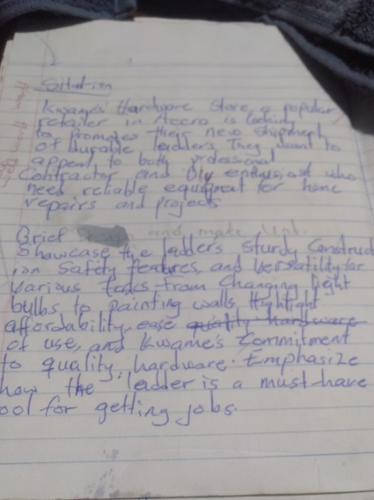 Situation
Kwame's Hardware Store, a popular
retailer in Accra is looking
to promote their new shipment
of durable ladders. They want to
appeal to both
Contractor and Diy enthusiast who
need reliable equipment for home
repairs and projects
Brief and make
Showcase the ladders sturdy construct
ion Safety features, and versatility for
various tasks from Changing light
bulbs to painting walls. Highlight
affordability, ease quality hardware
of use, and Kwame's Commitment
to quality hardware. Emphasize
how the leader is a must-have
ool for getting jobs.